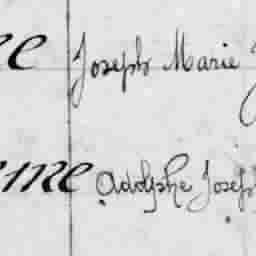 Joseph Marie
Adolphe Joseph